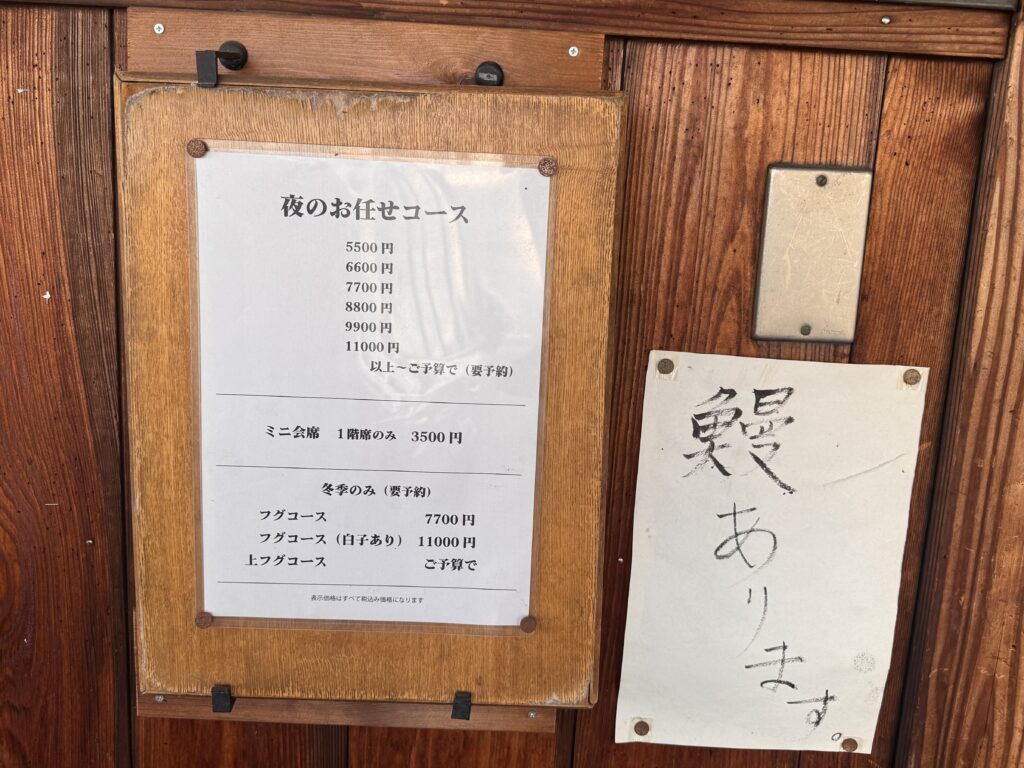 夜のお任せコース
5500 円
6600 円
7700 円
8800 円
9900 円
11000 円
以上～ご予算で（要予約）
ミニ会席　１階席のみ　3500 円
冬季のみ（要予約）
フグコース　7700 円
フグコース（白子あり）　11000 円
上フグコース　ご予算で
表示価格はすべて税込み価格になります
鰻あります。